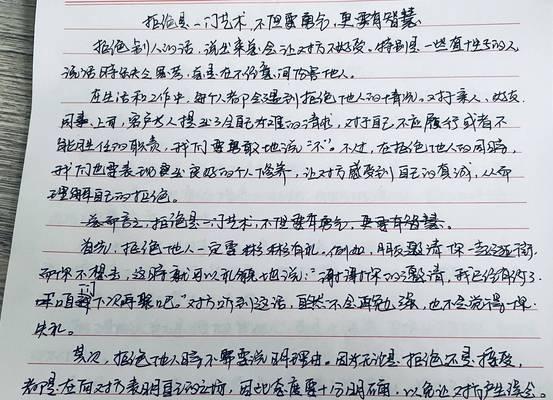 拒绝是一门艺术,不但要勇气,更要有智慧.
拒绝别人的话,说出来总会让对方不好受。特别是一些直性子的人,
说话时候失之柔婉,总是在不经意间伤害他人。
在生活和工作中,每个人都会遇到拒绝他人的情况。对于亲人、好友、
同事、上司、客户等人提出了令自己为难的请求,对于自己不应履行或者不
能胜任的职责,我们要勇敢地说"不"。不过,在拒绝他人的同时,
我们也要表现出更好的个人修养,让对方感受到自己的真诚,从而
理解自己的拒绝。
总而言之,拒绝是一门艺术,不但要有勇气,更要有智慧.
首先,拒绝他人一定要彬彬有礼。例如,朋友邀请你一起逛街,
而你不想去,这时就可以礼貌地说:"谢谢你的邀请,我已经有约了.
咱们下次再聚吧。"对方听到这话,自然不会再勉强,也不会觉得你
失礼。
其次,拒绝他人时需要说明理由。因为无论是拒绝还是接受,
都是在向对方表明自己的立场,因此态度要十分明确,以免让对方产生误会。